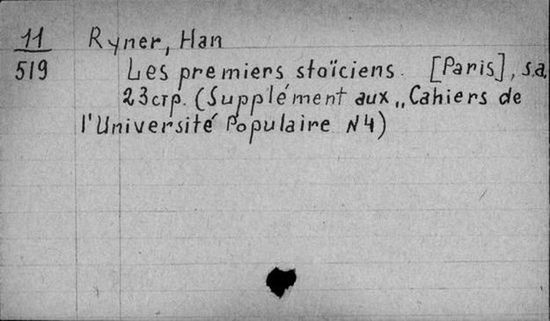 11 Ryner, Han
519 Les premiers stoïciens. [Paris], s.a,
23 стр. (Supplément aux „Cahiers de
l'Université Populaire N4)